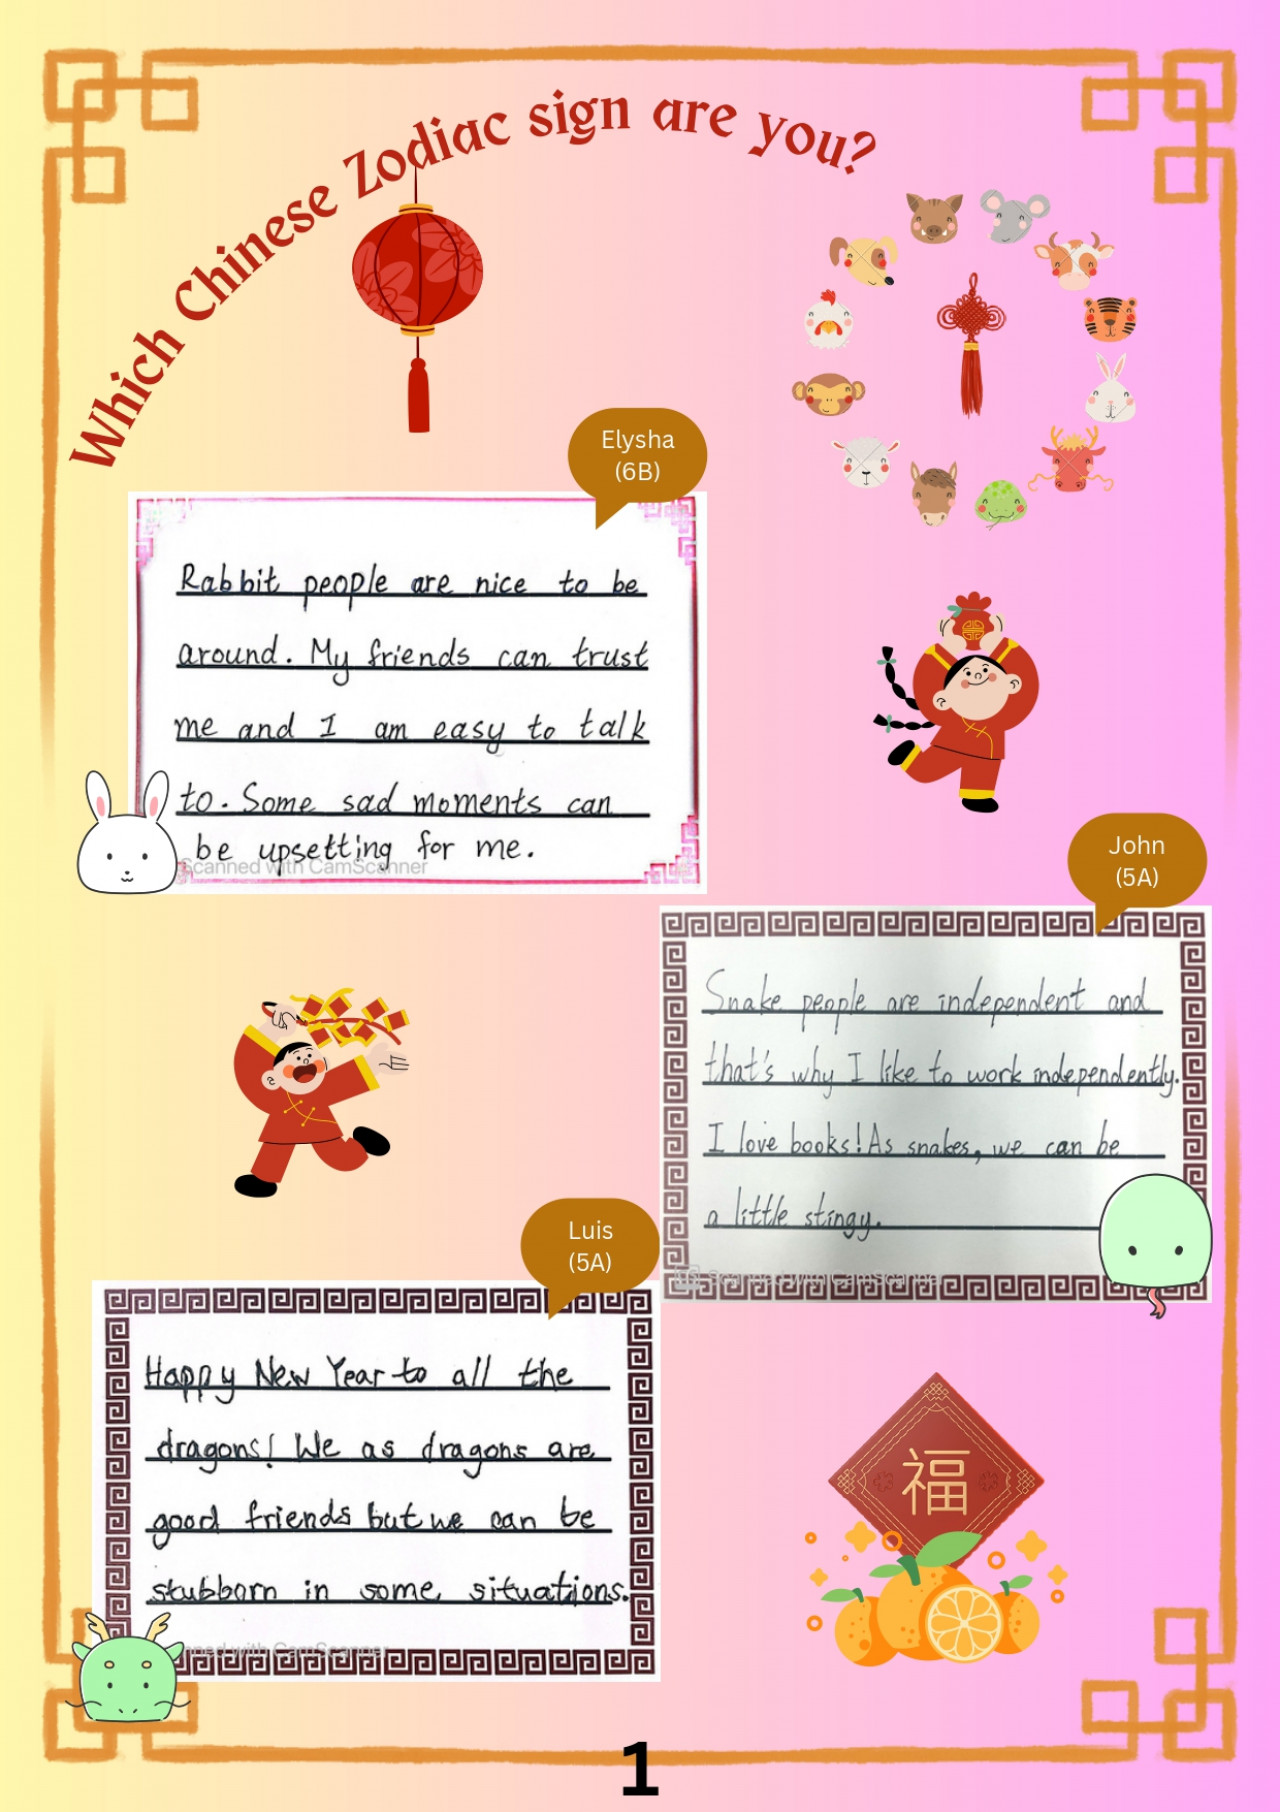 Which Chinese Zodiac sign are you?
Elysha
(6B)
Rabbit people are nice to be
around. My friends can trust
me and I am easy to talk
to. Some sad moments can
be upsetting for me.
Scanned with CamScanner
John
(5A)
Snake people are independent and
that's why I like to work independently.
I love books! As snakes, we can be
a little stingy.
Scanned with CamScanner
Luis
(5A)
Happy New Year to all the
dragons! We as dragons are
good friends but we can be
stubborn in some situations.
nned with CamScanner
福
1